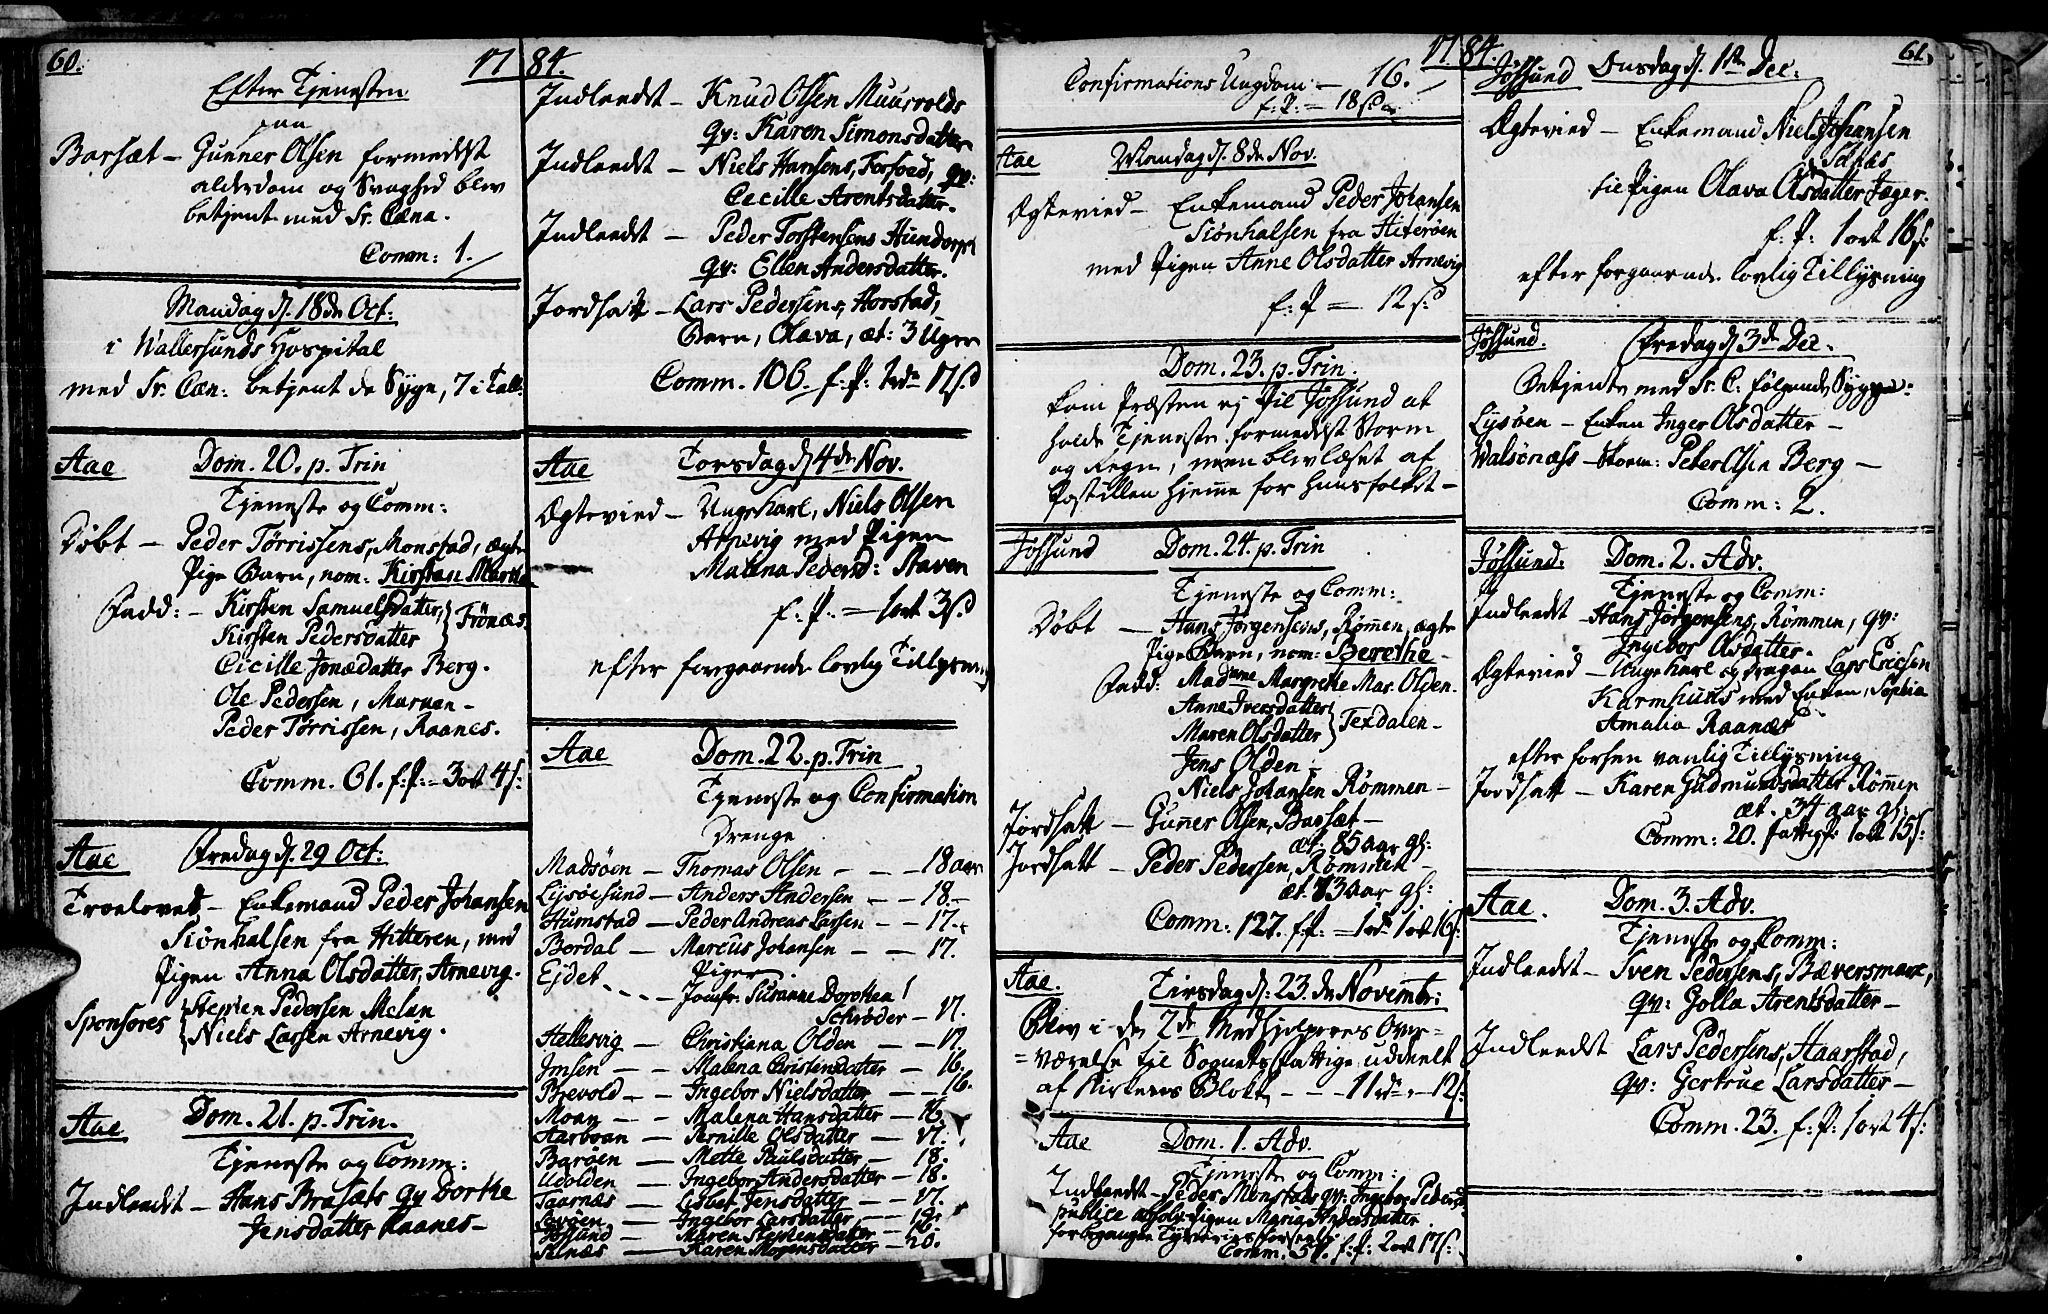 60. 17 84.
Efter Tjenesten
paa
Barsæt – Gunner Olsen formedelst
alderdom og Svaghed blev
betjent med Sr. Cæna.
Comm: 1.
Mandag d. 18de Oct:
i Wallersunds Hospital
med Sr. Cæn: betjent de Syge, 7 i Tall.
Aae Dom. 20. p. Trin
Tjeneste og Comm:
Døbt – Peder Tørrissens, Monstad, ægte
Pige Barn, nom: Kirsten Marthe
Fadd: – Kirsten Samuelsdatter, } Frönæs.
Kirsten Pedersdatter
Cicille Jonædatter Berg.
Ole Pedersen, Marvan –
Peder Tørrissen, Raanes.
Comm. 61. f: P: – 3 ort 4 s:
Aae Fredag d. 29 Oct:
Troelovet – Enkemand Peder Johansen
Skönhalsen fra Hitteren, med
Pigen Anna Olsdatter, Arnevig.
Sponsores { Stephen Pedersen Melan
Niels Larsen Arnevig.
Aae Dom. 21. p. Trin.
Tjeneste og Comm:
Indleedt – Hans Brasæts qv Dorthe
Jensdatter Raanes –
Indleedt – Knud Olsen Muurvolds
qv: Karen Simonsdatter
Indleedt – Niels Hansens, Forfoed, qv:
Cecille Arentsdatter.
Indleedt – Peder Torstensens Hundorp
qv: Ellen Andersdatter.
Jordsatt – Lars Pedersens, Horstad,
Barn, Olava, æt: 3 Uger
Comm. 106. f: P: 1 rdr 17 s
Aae Torsdag d 4de Nov.
Ægteviied – Ungekarl, Niels Olsen
Arnevig med Pigen
Malena Pedersd: Staven
f: P. = 1 ort 3 s
efter forgaaende lovlig Tillysning
Aae Dom. 22. p. Trin
Tjeneste og Confirmation
Drenge
Madsöen – Thomas Olsen – – – 18 aar
Lysöesund – Anders Andersen – – 18. –
Humstad – Peder Andreas Larsen – – 17. –
Berdal – Marcus Johansen – – 17.
Piger
Ejdet – – – Jomfr. Susanne Dorothea
Schrøder – 17.
Hellesvig – Christiana Olden – – 17.
Jmsen – – Malena Christensdatter – 16.
Brevold – – Ingebor Nielsdatter – – 16.
Moan – – Malena Hansdatter – 16.
Harboan – Pernille Olsdatter – 17.
Baröen – Mette Paulsdatter – 18.
Udolden – Ingebor Andersdatter – 18.
Taarnæs – Lisbet Jensdatter – – 17.
Ingebor Larsdatter – –
Jössund – Maren Stephensdatter – 16.
Karen Mogensdatter – 20.
17 84. 61.
Confirmations Ungdom – 16.
f: P: = 18 s
Aae Mandag d. 8de Nov.
Ægteviied – Enkemand Peder Johansen
Skönhalsen fra Hiteröen
med Pigen Anne Olsdatter Arnevig
f: P = 12 s:
Dom. 23. p. Trin.
kom Præsten ej til Jössund at
holde Tjeneste formedelst Storm
og Regn, men blev læset af
Postillen hjemme for Huusfolket –
Jössund Dom. 24. p. Trin
Tjeneste og Comm:
Döbt – Hans Jörgensens, Römmen, ægte
Pige Barn, nom: Berethe –
Fadd: Madame Margrethe Mar. Olden.
Anne Iversdatter } Texdalen –
Maren Olsdatter
Jens Olden –
Niels Johansen Römmen –
Jordsatt – Gunner Olsen, Barsæt –
æt: 85 aar gl:
Jordsatt – Peder Pedersen, Römmen –
æt. 73 aar gl:
Comm: 127. f: P. = 1 rdr 1 ort 16 s:
Aae. Tirsdag d: 23. de Novembr:
Blev i de 2de Medhjelperes Over=
=værelse til Sognets Fattige uddeelt
af Kirkens Blok – – – 11 rdr – 12 s:
Aae Dom. 1. Adv.
Tjeneste og Comm:
Indleedt – Peder Monstads qv: Ingebor Pedersd
publice absolv. Pigen Maria Andersdatter
for begangne Tyverie
Comm. 57. f: P: 2 ort 17 s:
Jössund Onsdag d. 1te Dec:
Ægteviied – Enkemand Niels Johansen
Sanas
til Pigen Olava Olsdatter Jæger.
f: P: 1 ort 16 s:
efter forgaaende lovlig Tillysning
Jössund. Fredag d 3de Dec.
Betjente med Sr. C: følgende Syge:
Lysöen – Enken Inger Olsdatter –
Walsönæss – Peter Olsen Berg –
Comm: 2.
Jössund. Dom. 2. Adv.
Tjeneste og Comm:
Indleedt – Hans Jörgensens, Römmen, qv:
Ingebor Olsdatter.
Ægteviied – Ungekarl og dragon Lars Ericsen
Karmhuus med Enken, Sophia
Amalia Raanæs
efter forhen vanlig Tillysning
Jordsatt – Karen Gudmundsdatter Römen
æt. 34 aar gl:
Comm: 20. fattigp: 1 ort 15 s:
Aae. Dom. 3. Adv.
Tjeneste og Comm:
Indleedt – Sven Pedersens, Bæversmare,
qv: Golla Arentsdatter –
Indleedt Lars Pedersens, Haarstad,
qv: Gertrue Larsdatter –
Comm. 23. f: P: 1 ort 4 s: